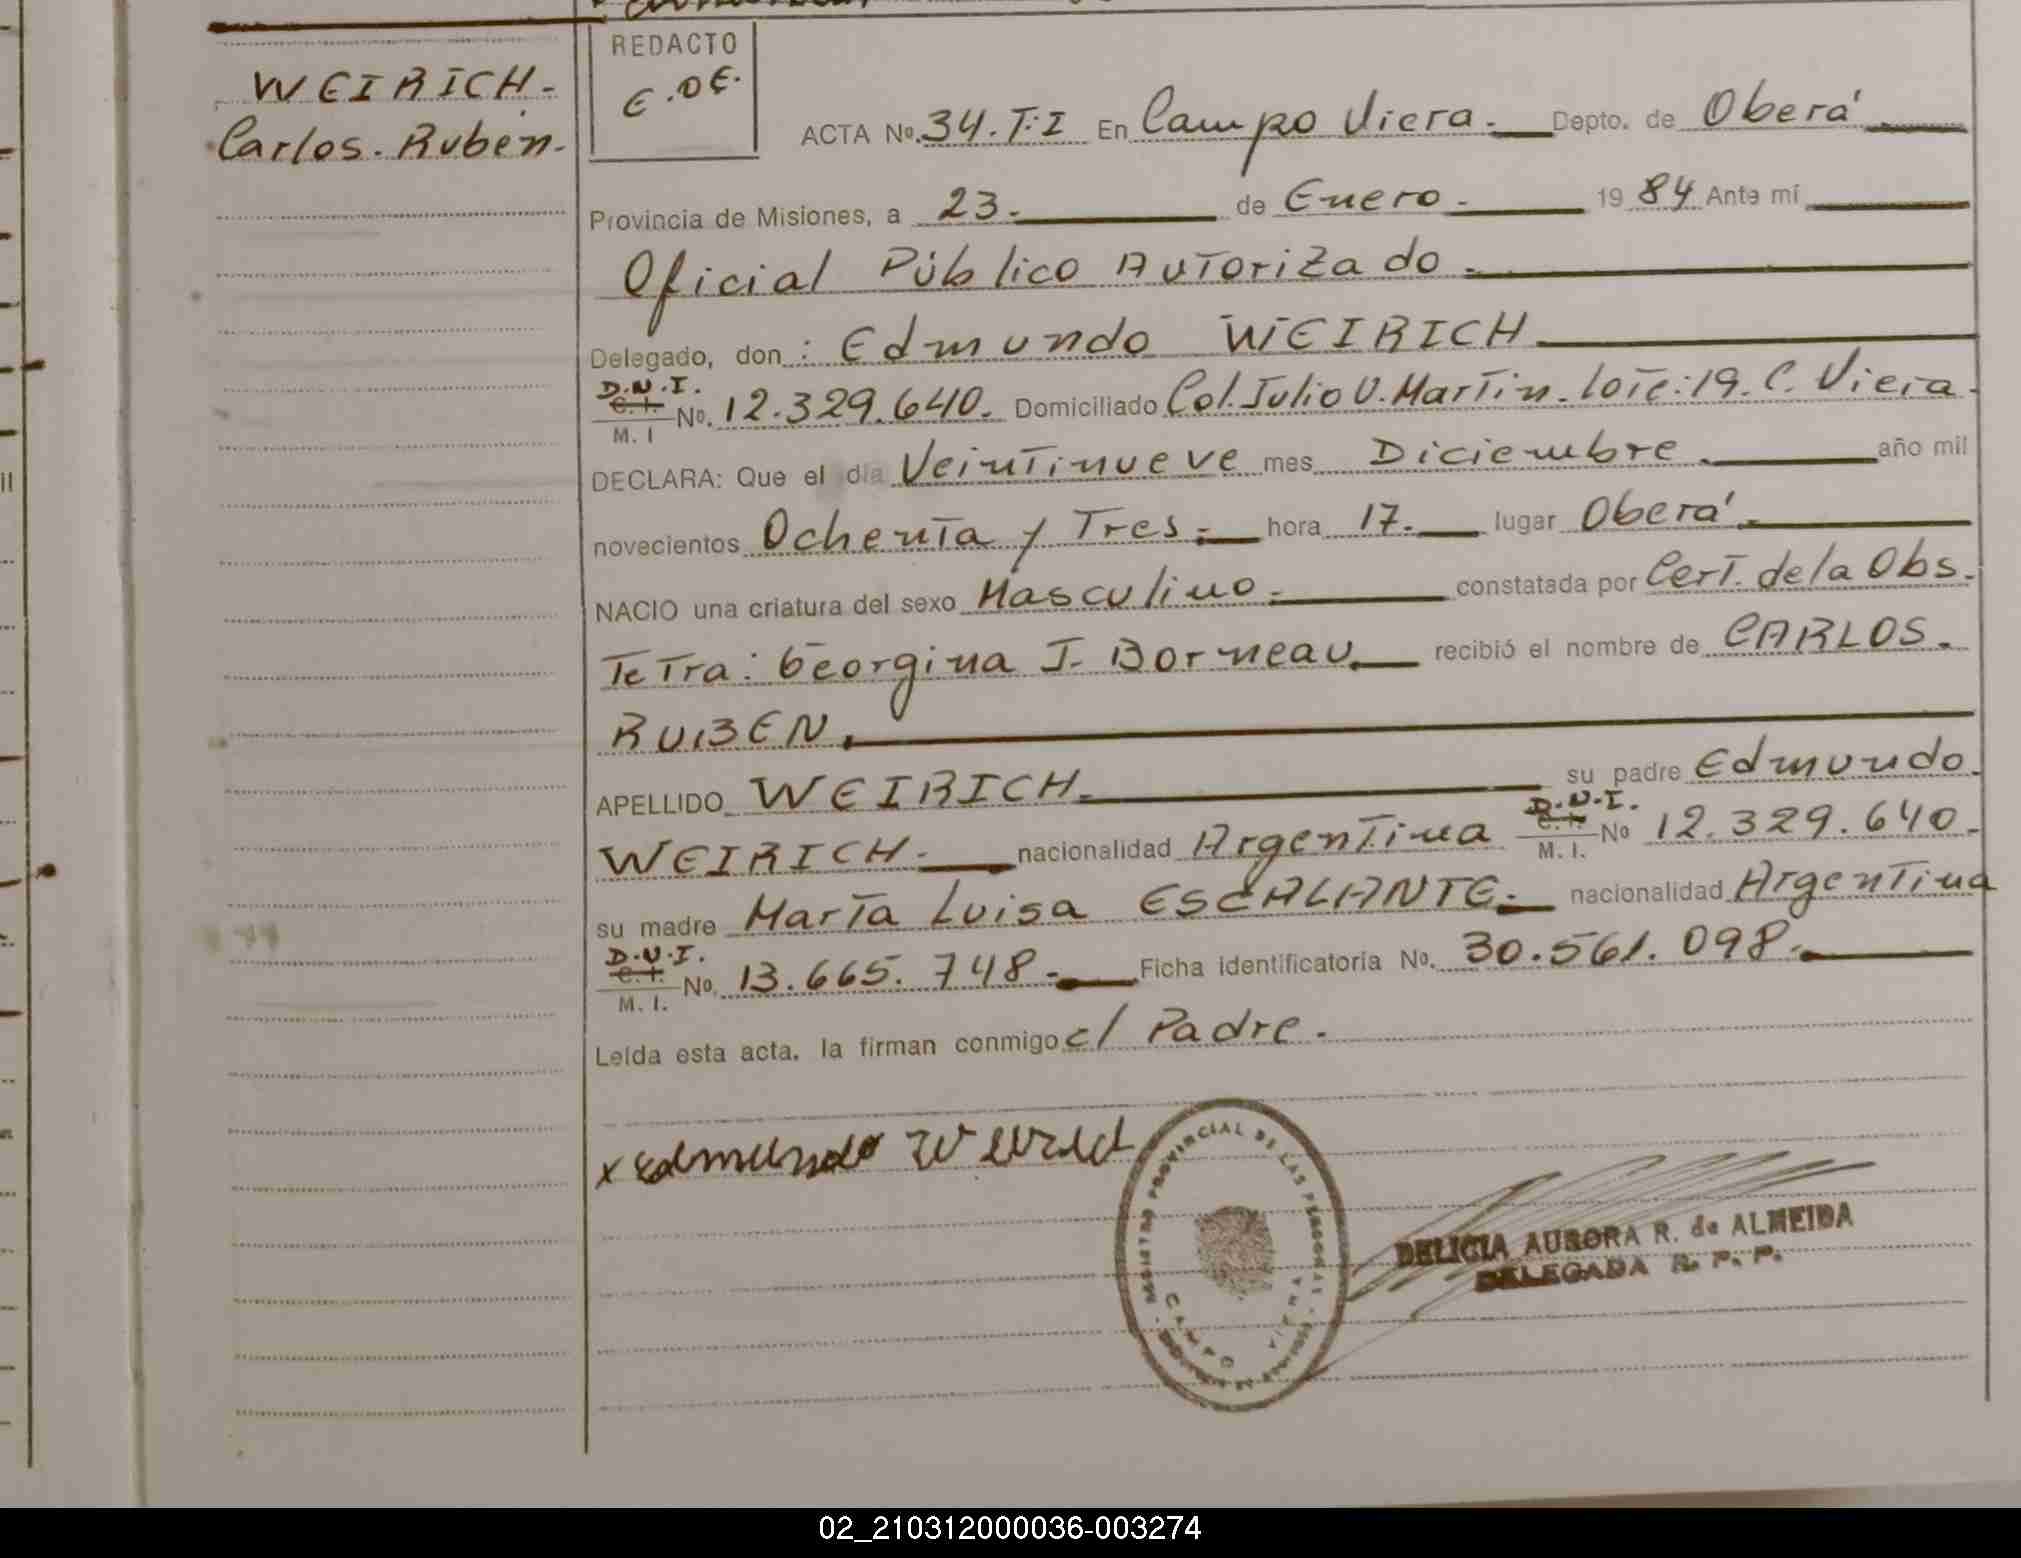 WEIRICH.
Carlos. Rubén.
REDACTO
E.DE.
ACTA No. 34.T:I En Campo Viera. Depto. de Oberá
Provincia de Misiones, a 23. de Enero. 1984 Ante mí
Oficial Público Autorizado.
Delegado, don : Edmundo WEIRICH
D.N.I.
C. I. No. 12.329.640. Domiciliado Col. Julio U. Martin. lote: 19. C. Viera.
M. I
DECLARA: Que el día Veintinueve mes Diciembre. año mil
novecientos Ochenta y Tres. hora 17. lugar Oberá.
NACIO una criatura del sexo Masculino. constatada por Cert. de la Obs.
Tetra: Georgina J. Borneau. recibió el nombre de CARLOS.
RUBEN.
APELLIDO WEIRICH. su padre Edmundo.
WEIRICH. nacionalidad Argentina D.N.I. C. I. No 12.329.640.
M. I.
su madre María Luisa ESCALANTE. nacionalidad Argentina
D.N.I.
C. I. No. 13.665.748. Ficha identificatoria No. 30.561.098.
M. I.
Leída esta acta, la firman conmigo c/ Padre.
x Edmundo Weirich
PROVINCIAL DE LAS PERSONAS
CAMPO VIERA
DELICIA AURORA R. de ALMEIDA
DELEGADA R. P. P.
02_210312000036-003274